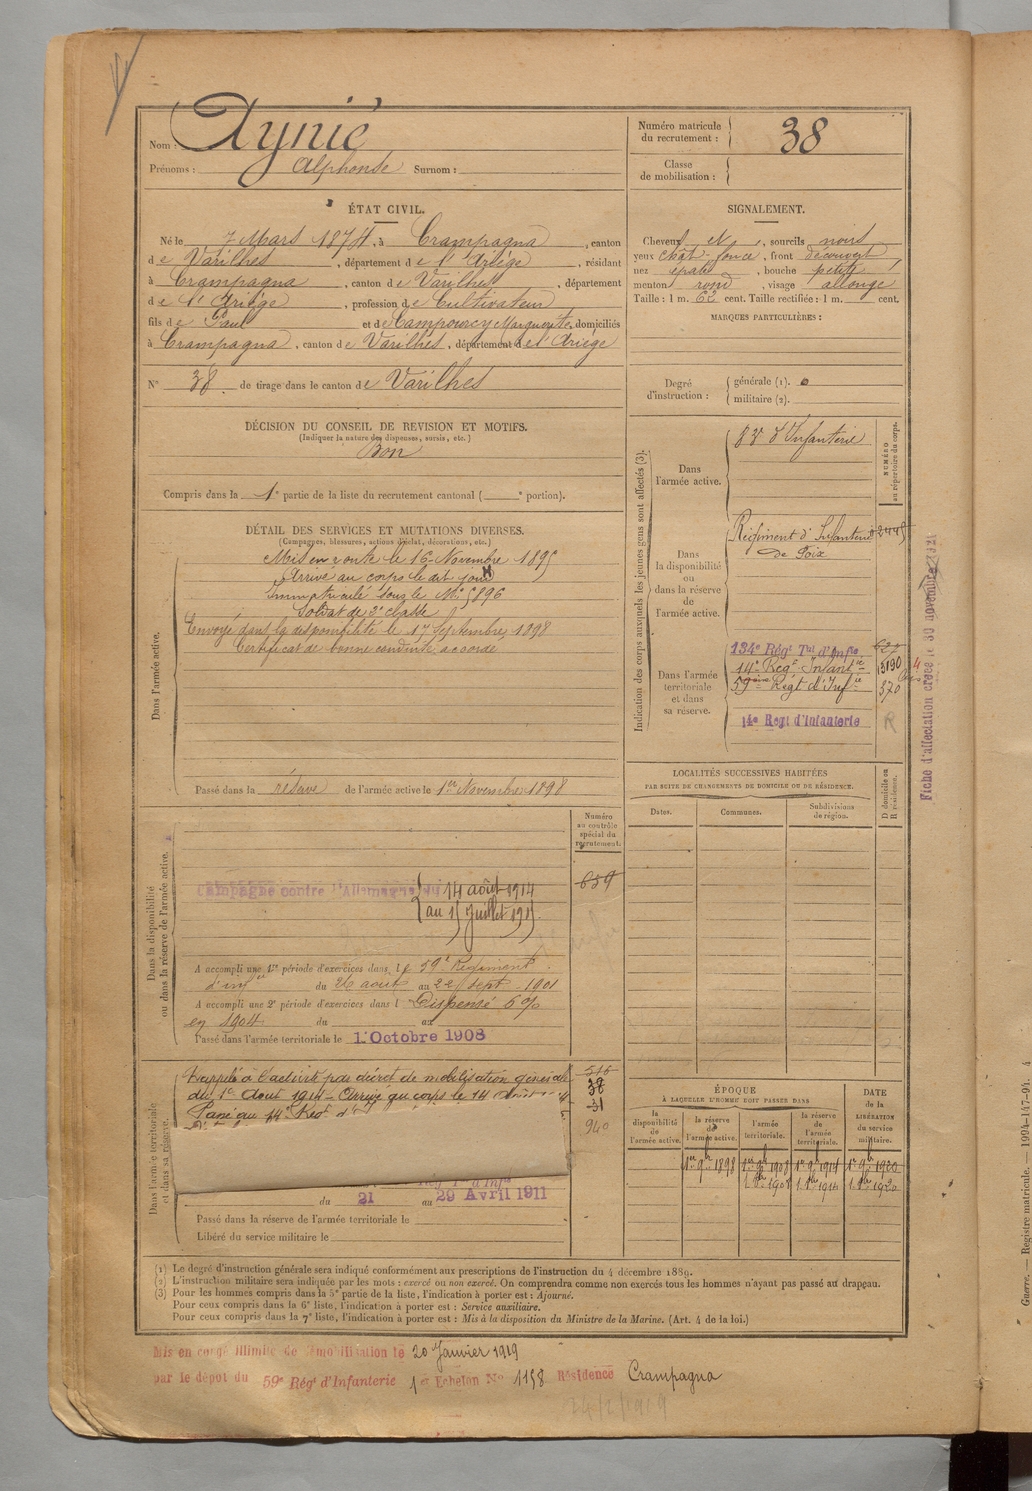 Nom : Aynié
Prénoms : Alphonse Surnom :
Numéro matricule du recrutement : 38
Classe de mobilisation :
ÉTAT CIVIL.
Né le 7 Mars 1874, à Crampagna, canton
de Varilhes, département de l'Ariège, résidant
à Crampagna, canton de Varilhes, département
de l'Ariège, profession de Cultivateur
fils de Paul et de Campourcy Marguerite, domiciliés
à Crampagna, canton de Varilhes, département de l'Ariège
N° 38 de tirage dans le canton de Varilhes
SIGNALEMENT.
Cheveux et, sourcils noirs
yeux chât. foncé, front découvert
nez épaté, bouche petite
menton rond, visage allongé
Taille : 1 m. 62 cent. Taille rectifiée : 1 m. cent.
MARQUES PARTICULIÈRES :
Degré d'instruction : générale (1). 0
militaire (2).
DÉCISION DU CONSEIL DE REVISION ET MOTIFS.
(Indiquer la nature des dispenses, sursis, etc.)
Bon
Compris dans la 1e partie de la liste du recrutement cantonal ( e portion).
DÉTAIL DES SERVICES ET MUTATIONS DIVERSES.
(Campagnes, blessures, actions d'éclat, décorations, etc.)
Dans l'armée active.
Mis en route le 16 Novembre 1895
Arrivé au corps le dit jour
Immatriculé sous le N° 5896
Soldat de 2e classe
Envoyé dans la disponibilité le 17 Septembre 1898
Certificat de bonne conduite accordé
Passé dans la réserve de l'armée active le 1er Novembre 1898
Indication des corps auxquels les jeunes gens sont affectés (3).
NUMÉRO au répertoire du corps.
Dans l'armée active.
d'Infanterie
Dans la disponibilité ou dans la réserve de l'armée active.
Régiment d'Infanterie
de Foix
Dans l'armée territoriale et dans sa réserve.
134e Régt Tal d'Infie
14e Régt Infantie 13190
59ème Régt d'Infie 370
14e Régt d'Infanterie R
Fiche d'affectation créée le 30 novembre
LOCALITÉS SUCCESSIVES HABITÉES
PAR SUITE DE CHANGEMENTS DE DOMICILE OU DE RÉSIDENCE.
Dates. Communes. Subdivisions de région. D domicile ou R résidence.
Dans la disponibilité ou dans la réserve de l'armée active.
Numéro au contrôle spécial du recrutement.
659
Campagne contre l'Allemagne du 14 août 1914
au 15 Juillet 1915
A accompli une 1re période d'exercices dans le 59e Régiment
d'infie du 26 août au 22 sept. 1901
A accompli une 2e période d'exercices dans l Dispensé 6 %
en 1904 du au
Passé dans l'armée territoriale le 1er Octobre 1908
Dans l'armée territoriale et dans sa réserve.
Rappelé à l'activité par décret de mobilisation générale
du 1er Août 1914 - Arrivé au corps le 14 Août
Passé au 14e Régt
516
38
31
940
du 21 au 29 Avril 1911
Passé dans la réserve de l'armée territoriale le
Libéré du service militaire le
ÉPOQUE
À LAQUELLE L'HOMME DOIT PASSER DANS
la disponibilité de l'armée active. la réserve de l'armée active. l'armée territoriale. la réserve de l'armée territoriale.
DATE de la LIBÉRATION du service militaire.
1er 9b 1898 1er 9b 1908 1er 9b 1914 1er 9b 1920
1. 8bre 1908 1. 8bre 1914 1. 8bre 1920
(1) Le degré d'instruction générale sera indiqué conformément aux prescriptions de l'instruction du 4 décembre 1889.
(2) L'instruction militaire sera indiquée par les mots : exercé ou non exercé. On comprendra comme non exercés tous les hommes n'ayant pas passé au drapeau.
(3) Pour les hommes compris dans la 5e partie de la liste, l'indication à porter est : Ajourné.
Pour ceux compris dans la 6e liste, l'indication à porter est : Service auxiliaire.
Pour ceux compris dans la 7e liste, l'indication à porter est : Mis à la disposition du Ministre de la Marine. (Art. 4 de la loi.)
Mis en congé illimité de démobilisation le 20 Janvier 1919
par le dépôt du 59e Régt d'Infanterie 1er Echelon No 1158 Résidence Crampagna
Guerre. — Registre matricule. — 1904-147-94. 4